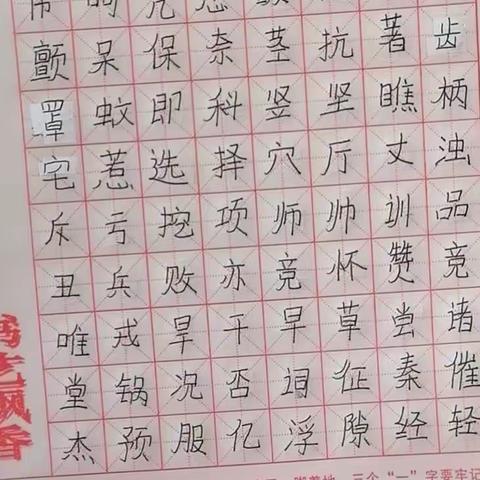 颤呆保奈茎抗著齿
罩蚊即科竖坚瞧柄
宅惹选择穴厅丈浊
斥亏挖项师帅训品
丑兵败亦竞怀赞竞
唯戎旱干旱草尝诸
堂锅况否词征秦催
杰预服亿浮隙经轻
飘香
三个“一”字要牢记